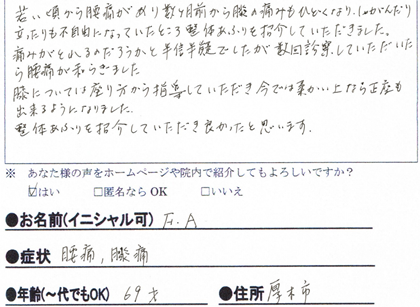 若い頃から腰痛があり数ヶ月前から膝の痛みもひどくなり、しゃがんだり
立ったりも不自由になっていたところ整体あふりを紹介していただきました。
痛みがとれるのだろうかと半信半疑でしたが数回診察していただいた
ら腰痛が和らぎました
膝については座り方から指導していただき今では柔かい上なら正座も
出来るようになりました。
整体あふりを紹介していただき良かったと思います.
※ あなた様の声をホームページや院内で紹介してもよろしいですか？
☑はい □匿名なら OK □いいえ
●お名前(イニシャル可) F.A
●症状 腰痛,膝痛
●年齢(〜代でもOK) 69才 ●住所 厚木市